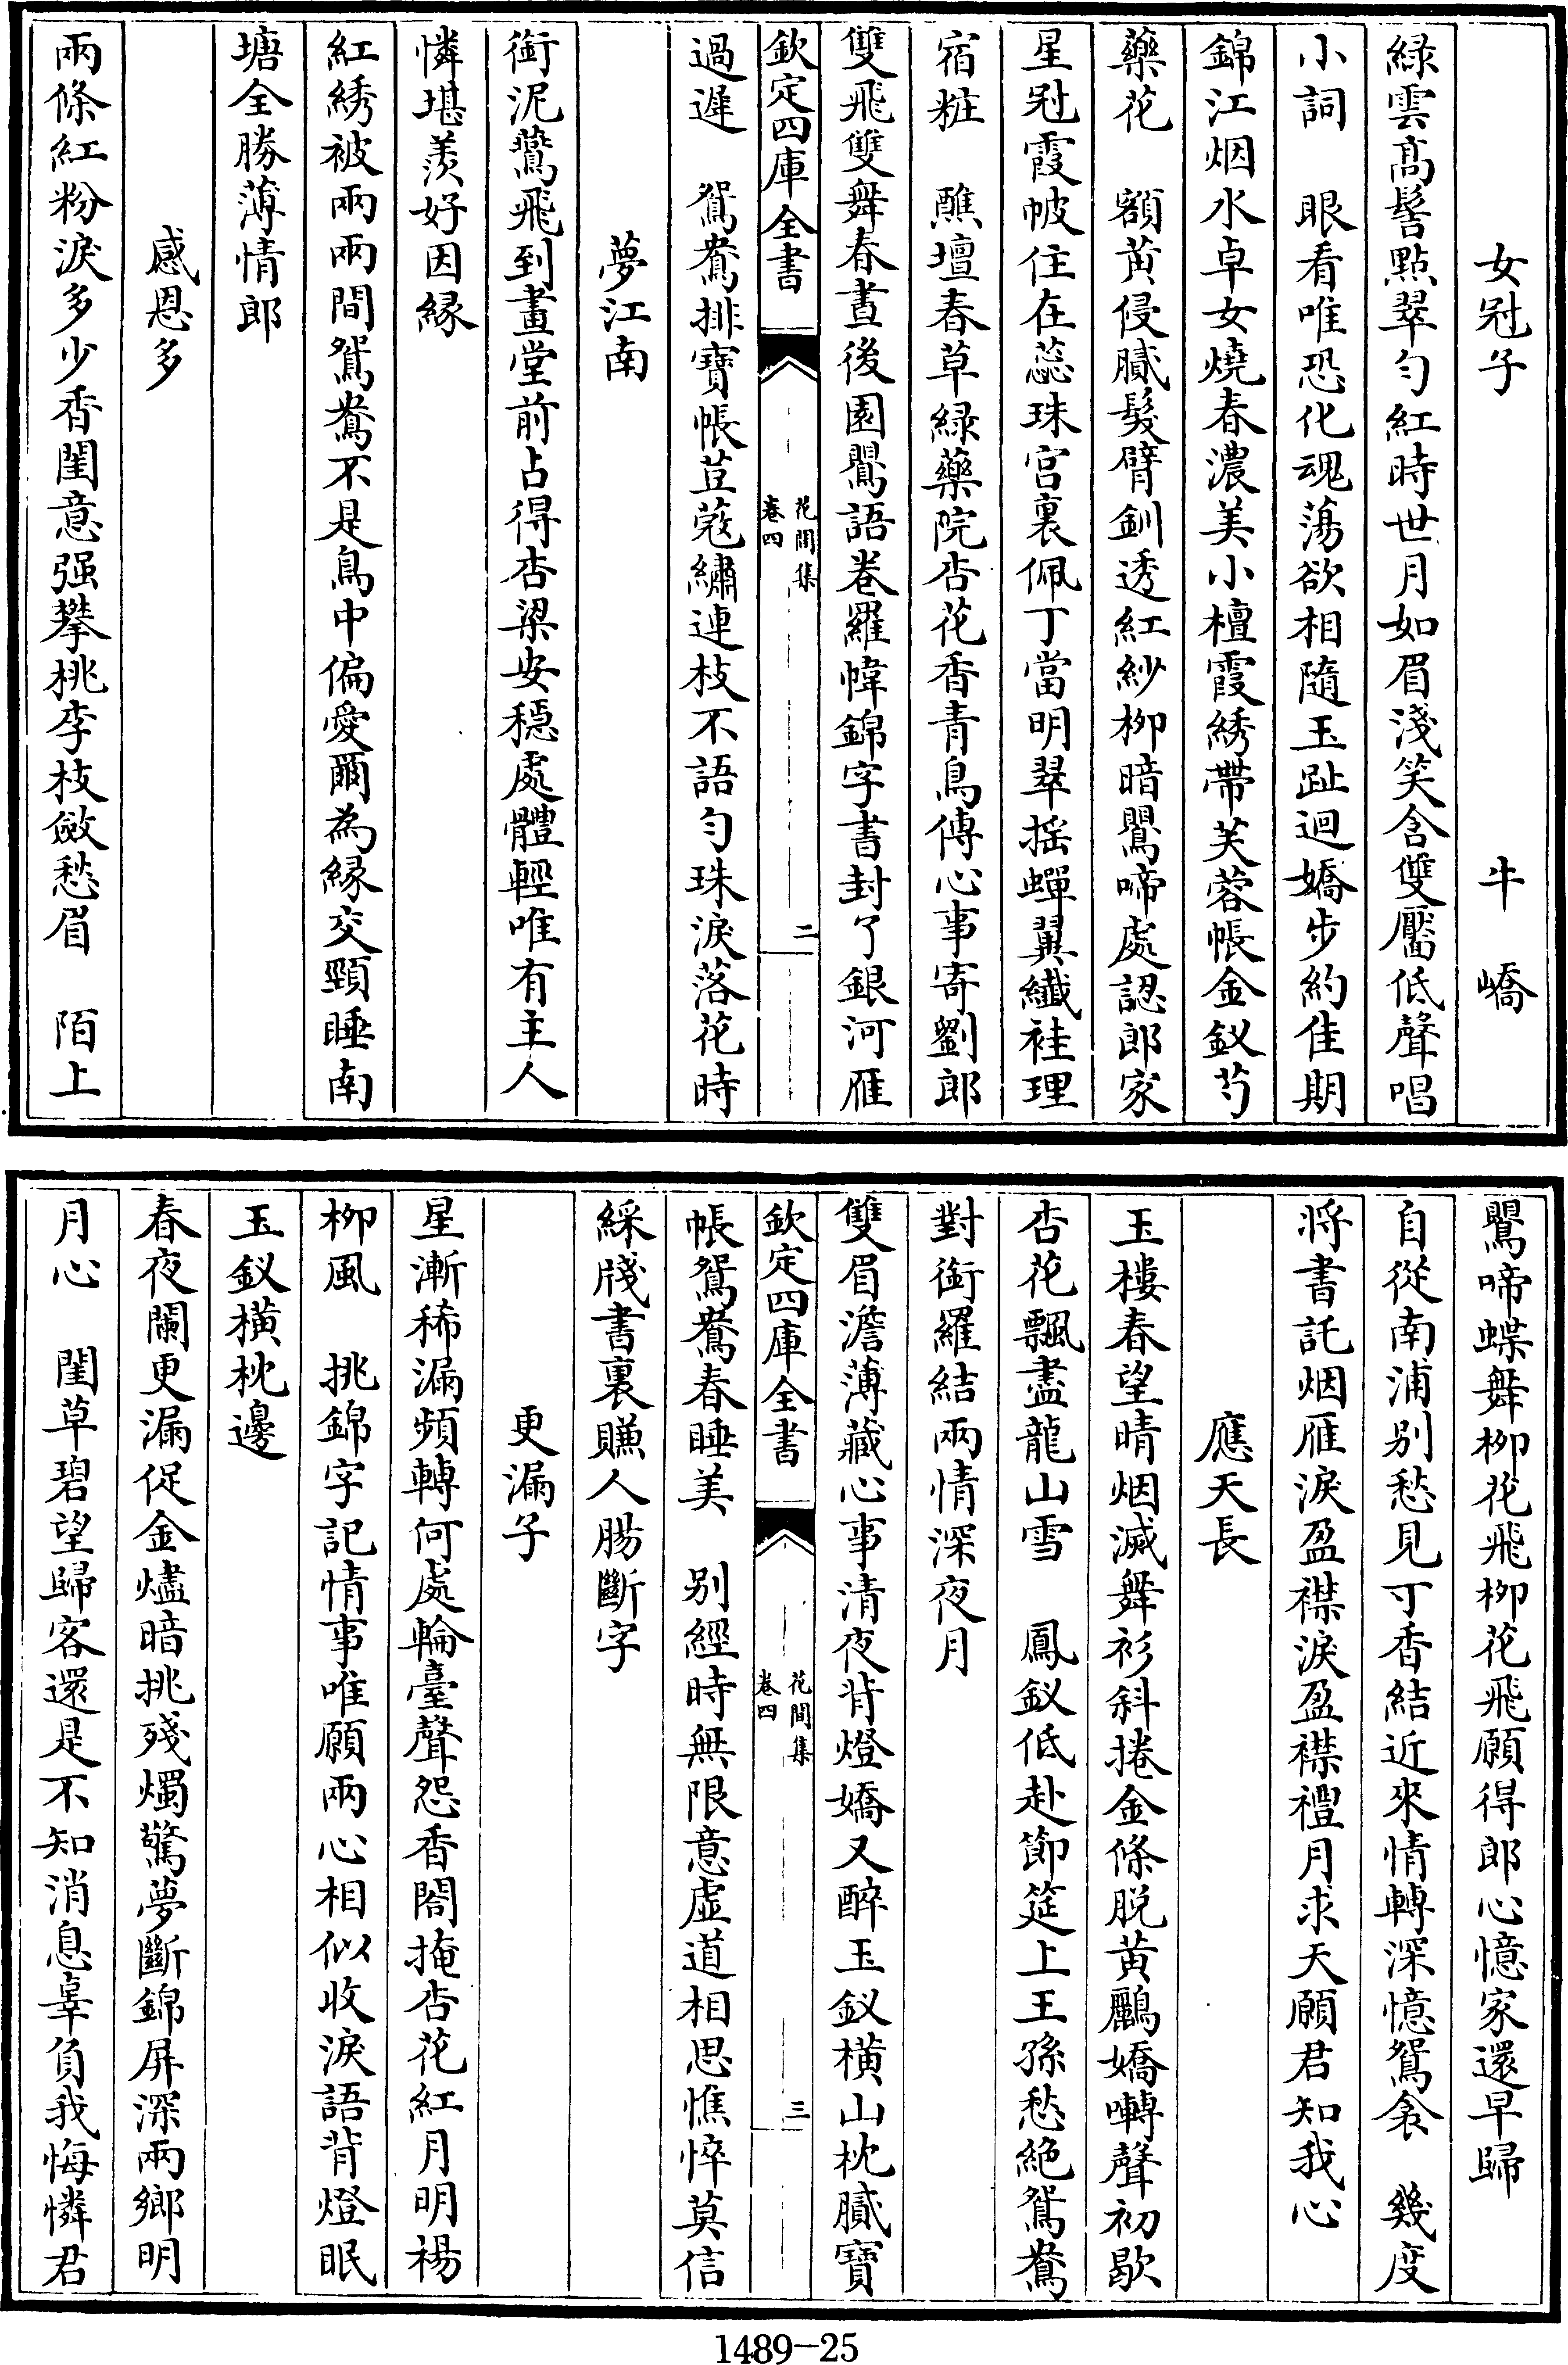 女冠子　牛嶠
綠雲髙髻點翠勻紅時世月如眉淺笑含雙靨低聲唱
小詞　眼看唯恐化魂蕩欲相隨玉趾迴嬌步約佳期
錦江烟水卓女燒春濃美小檀霞綉帶芙蓉帳金釵芍
藥花　額黄侵膩髮臂釧透紅紗柳暗鸎啼處認郎家
星冠霞帔住在蕊珠宫裏佩丁當明翠摇蟬翼纖袿理
宿粧　醮壇春草綠藥院杏花香青鳥傳心事寄劉郎
雙飛雙舞春晝後園鸎語卷羅幃錦字書封了銀河雁
過遲　鴛鴦排寶帳荳蔻繡連枝不語勻珠淚落花時
夢江南
銜泥鷰飛到畫堂前占得杏梁安穩處體輕唯有主人
憐堪羨好因緣
紅綉被兩兩間鴛鴦不是鳥中偏愛爾為緣交頸睡南
塘全勝薄情郎
感恩多
兩條紅粉淚多少香閨意强攀桃李枝斂愁眉　陌上
欽定四庫全書
花間集
卷四
二
鸎啼蝶舞柳花飛柳花飛願得郎心憶家還早歸
自從南浦别愁見丁香結近來情轉深憶鴛衾　幾度
將書託烟雁淚盈襟淚盈襟禮月求天願君知我心
應天長
玉樓春望晴烟滅舞衫斜捲金條脱黄鸝嬌囀聲初歇
杏花飄盡龍山雪　鳳釵低赴節筵上王孫愁絶鴛鴦
對銜羅結兩情深夜月
雙眉澹薄藏心事清夜背燈嬌又醉玉釵橫山枕膩寶
帳鴛鴦春睡美　别經時無限意虚道相思憔悴莫信
綵牋書裏賺人腸斷字
更漏子
星漸稀漏頻轉何處輪臺聲怨香閤掩杏花紅月明楊
柳風　挑錦字記情事唯願兩心相似收淚語背燈眠
玉釵橫枕邊
春夜闌更漏促金燼暗挑殘燭驚夢斷錦屏深兩鄉明
月心　閨草碧望歸客還是不知消息辜負我悔憐君
欽定四庫全書
花間集
卷四
三
1489-25